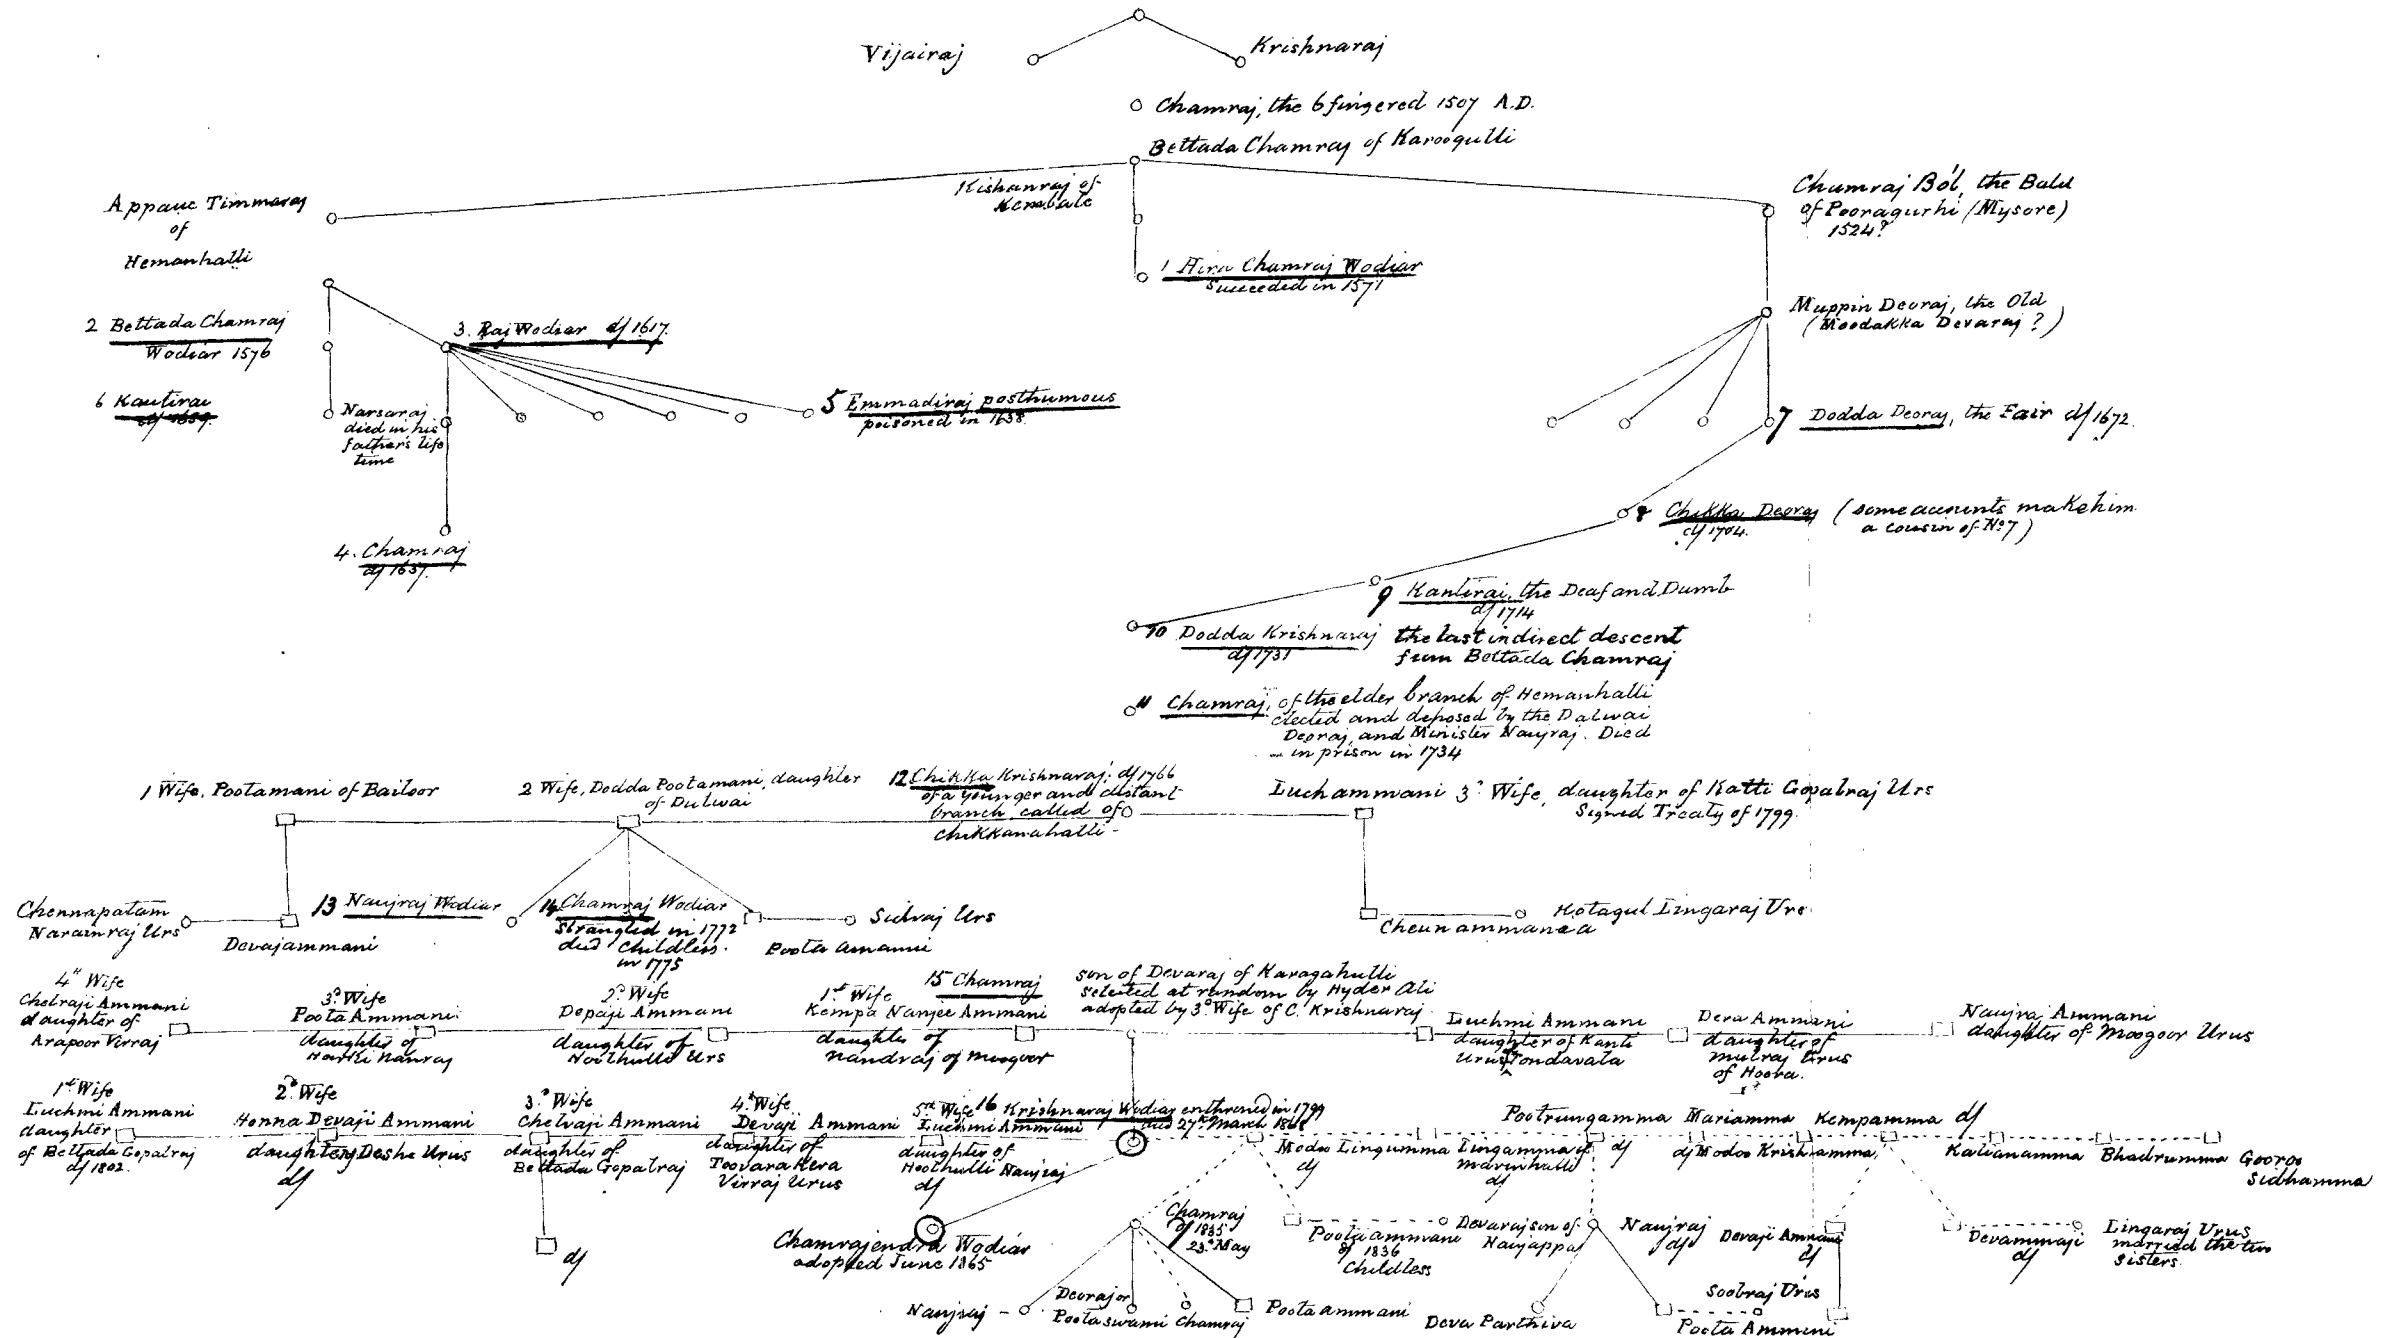 Vijairaj
Krishnaraj
Chamraj, the 6 fingered 1507 A.D.
Bettada Chamraj of Karoogulli
Appane Timmaraj
of
Hemanhalli
Kishanraj of
Kembale
Chamraj Ból, the Bald
of Pooragurhi (Mysore)
1524?
1 Hira Chamraj Wodiar
succeeded in 1571
2 Bettada Chamraj
Wodiar 1576
3. Raj Wodiar d/ 1617.
Muppin Deoraj, the Old
(Moodakka Devaraj ?)
6 Kantirai
d/ 1659.
Narsaraj
died in his
father's life
time
5 Emmadiraj posthumous
poisoned in 1638
7 Dodda Deoraj, the Fair d/ 1672.
8 Chikka Deoraj (some accounts make him
d/ 1704. a cousin of No 7)
4. Chamraj
d/ 1637.
9 Kantirai, the Deaf and Dumb
d/ 1714
10 Dodda Krishnaraj the last indirect descent
d/ 1731 from Bettada Chamraj
11 Chamraj, of the elder branch of Hemanhalli
elected and deposed by the Dalwai
Deoraj, and Minister Nanjraj. Died
in prison in 1734
1 Wife. Pootamani of Bailoor
2 Wife, Dodda Pootamani, daughter
of Dulwai
12 Chikka Krishnaraj: d/ 1766
of a younger and distant
branch called of
Chikkanahalli -
Luchammani 3d Wife, daughter of Katti Gopalraj Urs
Signed Treaty of 1799.
Chennapatam
Narainraj Urs
Devajammani
13 Nanjraj Wodiar
14 Chamraj Wodiar
Strangled in 1772
died childless.
in 1775
Sidraj Urs
Poota Ammani
Hotagul Lingaraj Urs
4th Wife
Chelraji Ammani
daughter of
Arapoor Virraj
3d Wife
Poota Ammani.
daughter of
Nanraj
2d Wife
Depaji Ammani
daughter of
Urs
1st Wife
Kempa Nanjee Ammani
daughter of
Nandraj of Moogoor
15 Chamraj
son of Devaraj of Karagahulli
selected at random by Hyder Ali
adopted by 3d Wife of C. Krishnaraj
Luchmi Ammani
daughter of Kanti
Urus Tondavala
Deva Ammani
daughter of
Mulraj Urus
of Hoora.
Nanjra, Ammani
daughter of Moogoor Urus
1st Wife
Luchmi Ammani
daughter
of Bettada Gopalraj
d/ 1802.
2d Wife
Honna Devaji Ammani
daughter of Deshe Urus
d/
3d Wife
Chelvaji Ammani
daughter of
Bettada Gopalraj
4th Wife
Devaji Ammani
daughter of
Toovarakera
Virraj Urus
5th Wife
Luchmi Ammani
daughter of
Hoothulli Nanjraj
d/
16 Krishnaraj Wodiar enthroned in 1799
died 27th March 1868
Pootrungamma Mariamma Kempamma d/
Modoo Lingumma
d/
Lingamma of
d/
d/
d/ Modoo Krishnamma
Kalianamma Bhadrumma Gooroo
Sidhamma
d/
Chamrajendra Wodiar
adopted June 1865
Chamraj
d/ 1835
23d May
Pootaammani
d/ 1836
Childless
Devaraj son of
Nanjappa
Nanjraj
d/
Devaji Ammani
d/
Devammaji
d/
Lingaraj Urus
married the two
sisters.
Nanjraj
Deoraj or
Pootaswami
Chamraj
Pootaammani
Deva Parthiva
Soobraj Urs
Poota Ammani